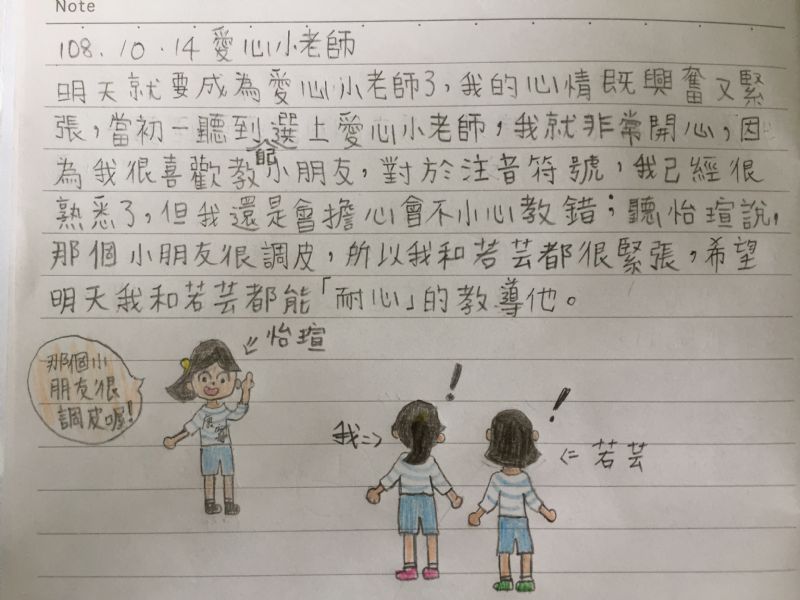 Note
108.10.14 愛心小老師
明天就要成為愛心小老師了,我的心情既興奮又緊
張,當初一聽到能選上愛心小老師,我就非常開心,因
為我很喜歡教小朋友,對於注音符號,我已經很
熟悉了,但我還是會擔心會不小心教錯;聽怡瑄說,
那個小朋友很調皮,所以我和若芸都很緊張,希望
明天我和若芸都能「耐心」的教導他。
怡瑄
那個小
朋友很
調皮喔!
!
!
我=>
<= 若芸